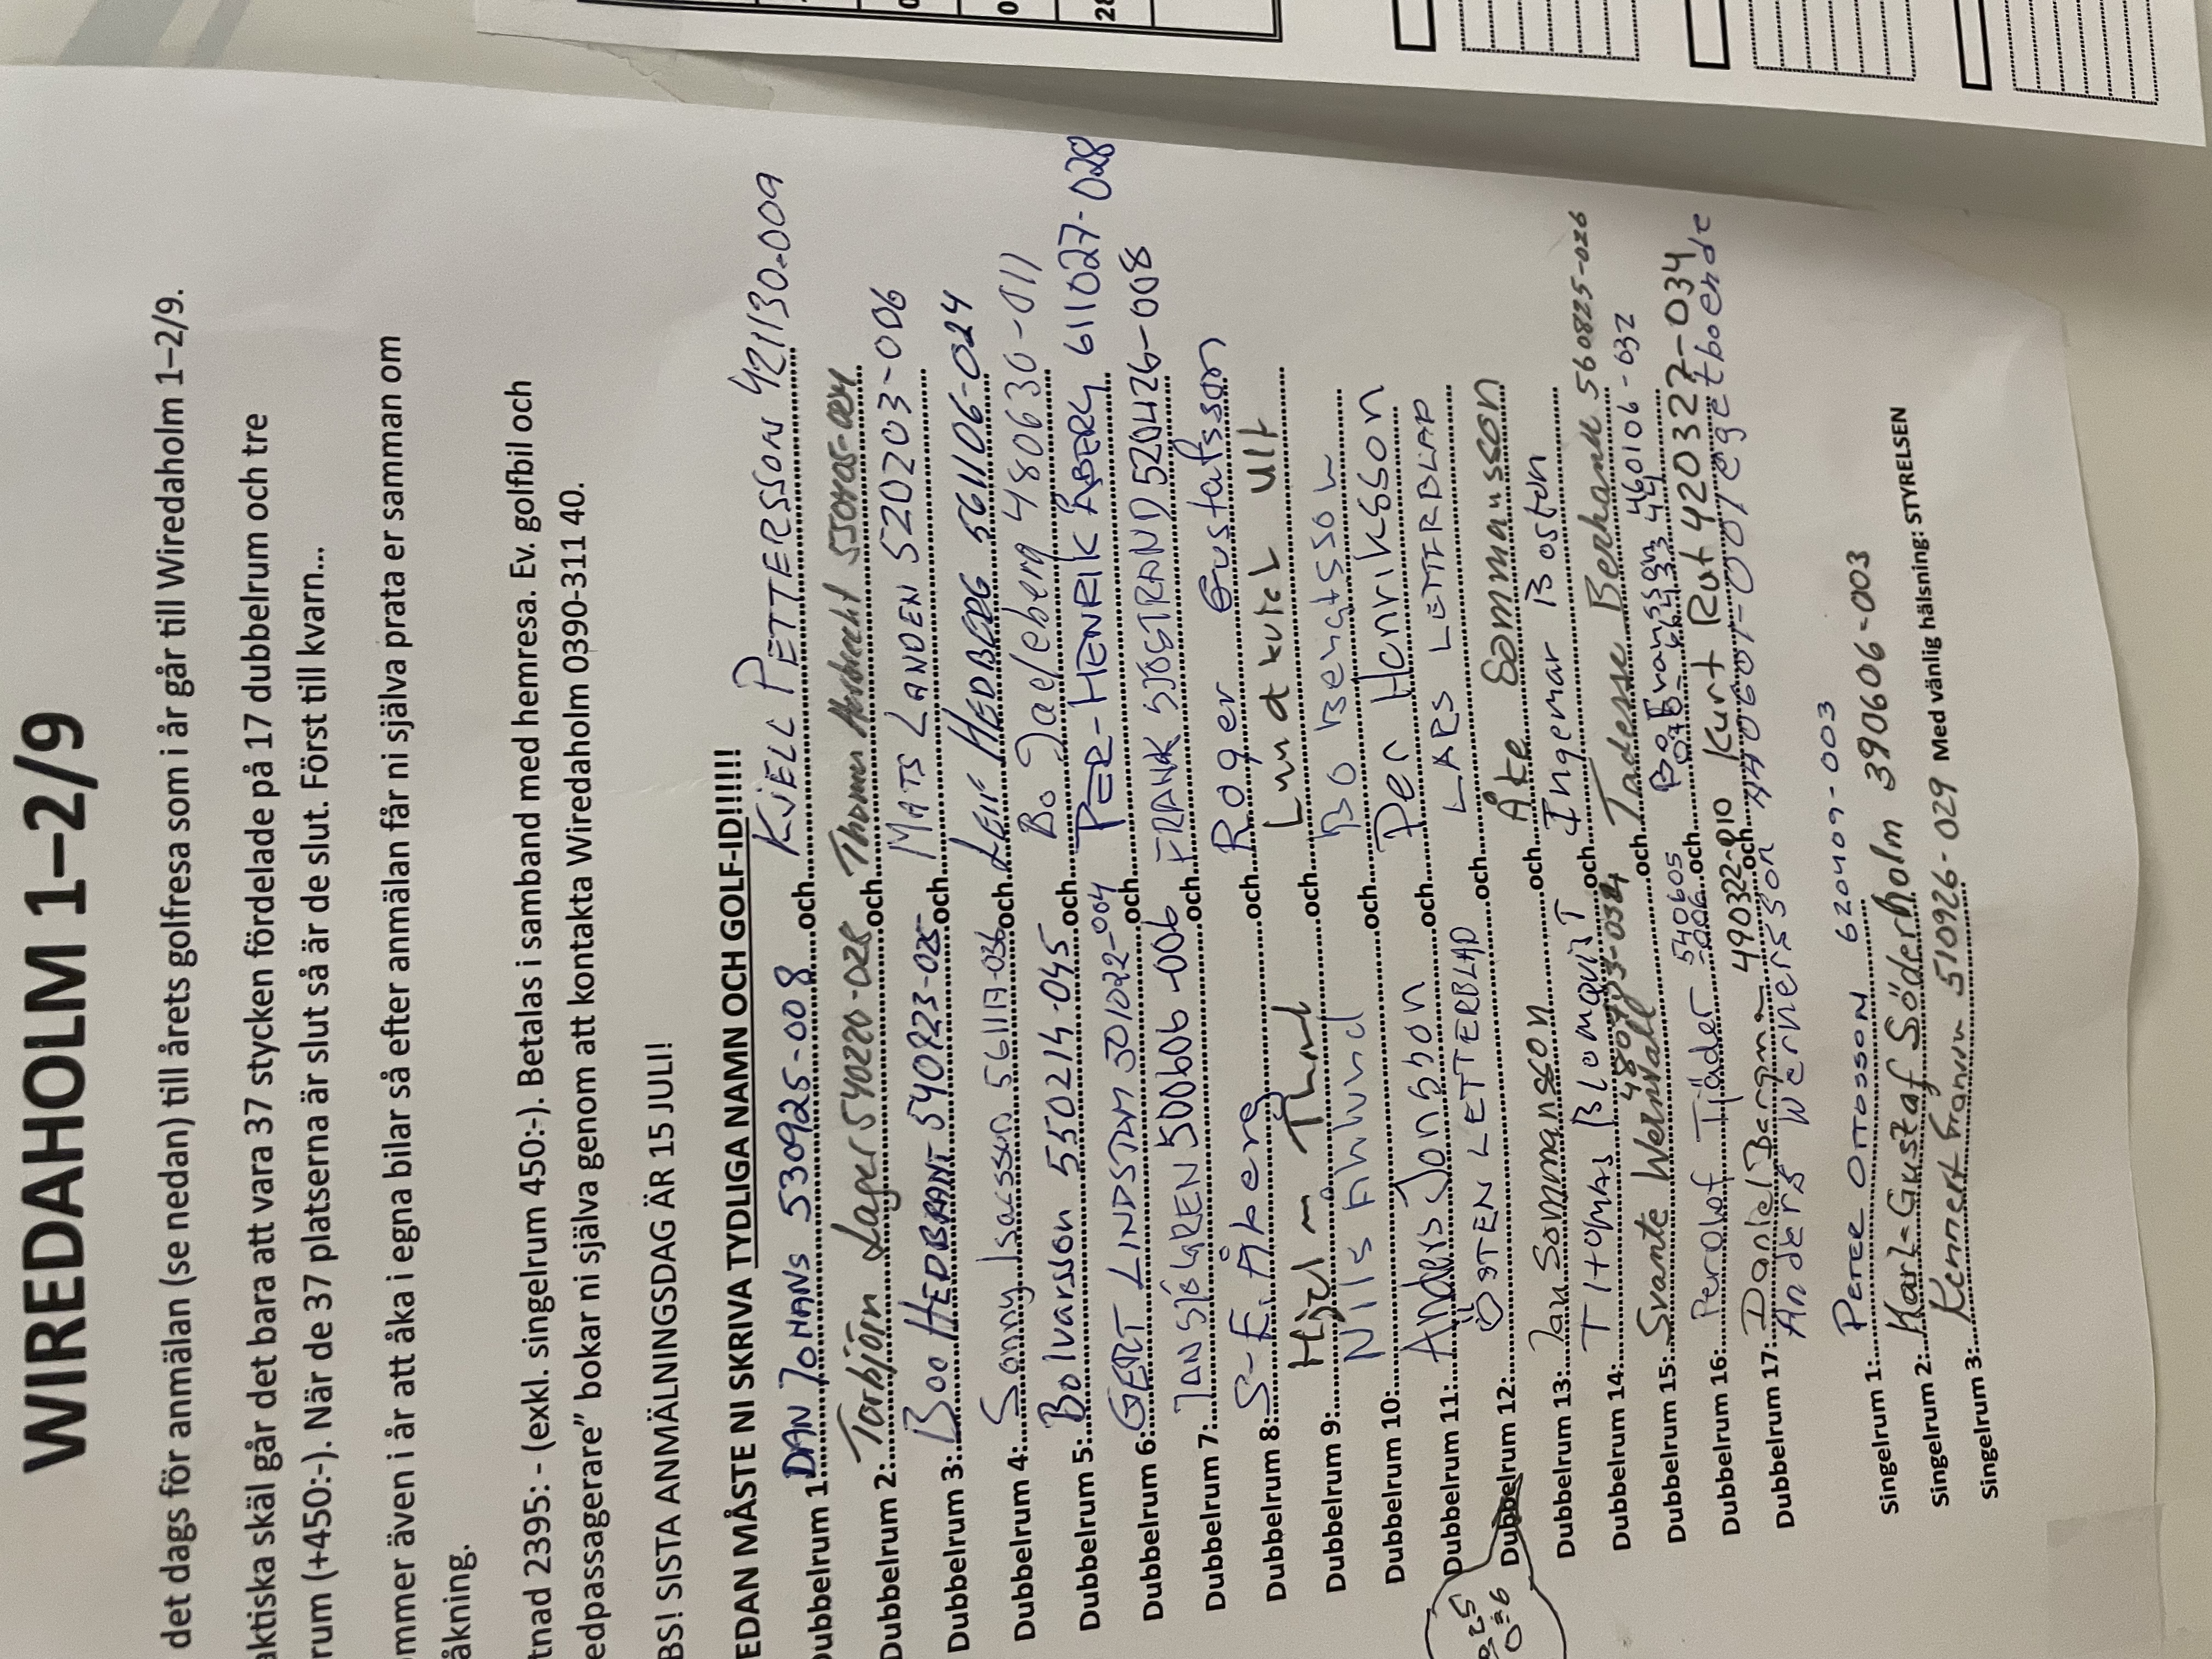 WIREDAHOLM 1–2/9
det dags för anmälan (se nedan) till årets golfresa som i år går till Wiredaholm 1–2/9.
aktiska skäl går det bara att vara 37 stycken fördelade på 17 dubbelrum och tre
rum (+450:-). När de 37 platserna är slut så är de slut. Först till kvarn...
ommer även i år att åka i egna bilar så efter anmälan får ni själva prata er samman om
åkning.
tnad 2395: - (exkl. singelrum 450:-). Betalas i samband med hemresa. Ev. golfbil och
edpassagerare” bokar ni själva genom att kontakta Wiredaholm 0390-311 40.
BS! SISTA ANMÄLNINGSDAG ÄR 15 JULI!
EDAN MÅSTE NI SKRIVA TYDLIGA NAMN OCH GOLF-ID!!!!!!
Dubbelrum 1: DAN JOHANS 530925-008 och KJELL PETTERSSON 421130-009
Dubbelrum 2: Torbjörn Lager 540220-028 och Thomas
Dubbelrum 3: Boo HEDBRANT 540723-025 och MATS LANDEN 520203-006
Dubbelrum 4: Sonny Isacsson 561117-036 och LEIF HEDBERG 561106-024
Dubbelrum 5: Bo Ivarsson 550214-045 och Bo Jaeleberg 480630-011
Dubbelrum 6: GERT LINDSTRM 501022-004 och PER-HENRIK ÅBERG 611027-028
Dubbelrum 7: JAN SJÖGREN 500606-006 och FRANK SJÖSTRAND 520426-008
Dubbelrum 8: S-E. Åberg och Roger Gustafsson
Dubbelrum 9: Hjalm Thord och Lundkvist Ulf
Dubbelrum 10: Nils Ahlund och Bo Bengtsson
Dubbelrum 11: Anders Jonsson och Per Henriksson
Dubbelrum 12: ÖSTEN LETTERBLAD och LARS LETTERBLAD
Dubbelrum 13: Jan Sommansson och Åke Sommansson
Dubbelrum 14: THOMAS BlomqvisT och Ingemar Boston
Dubbelrum 15: Svante Wernvall och Tadesse Berhanu 560825-026
Dubbelrum 16: Perolof Tjäder 540605 och Bo Fransson 460106-032
Dubbelrum 17: Daniel Bergman 490322-010 och Kurt Rut 420327-034
Anders Wernersson 440601-001 eget boende
Singelrum 1: PETER OTTOSSON 620409-003
Singelrum 2: Karl-Gustaf Söderholm 390606-003
Singelrum 3: Kennert Franson 510926-029 Med vänlig hälsning: STYRELSEN